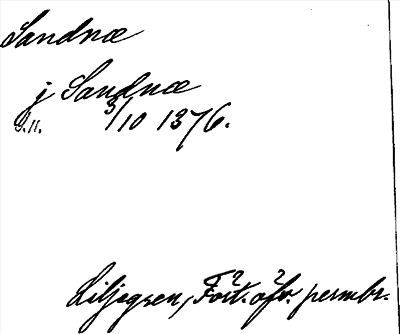 Sandnæ
j Sandnæ
S.H. 3/10 1376.
Liljegren, Fört. öfv. permbr.